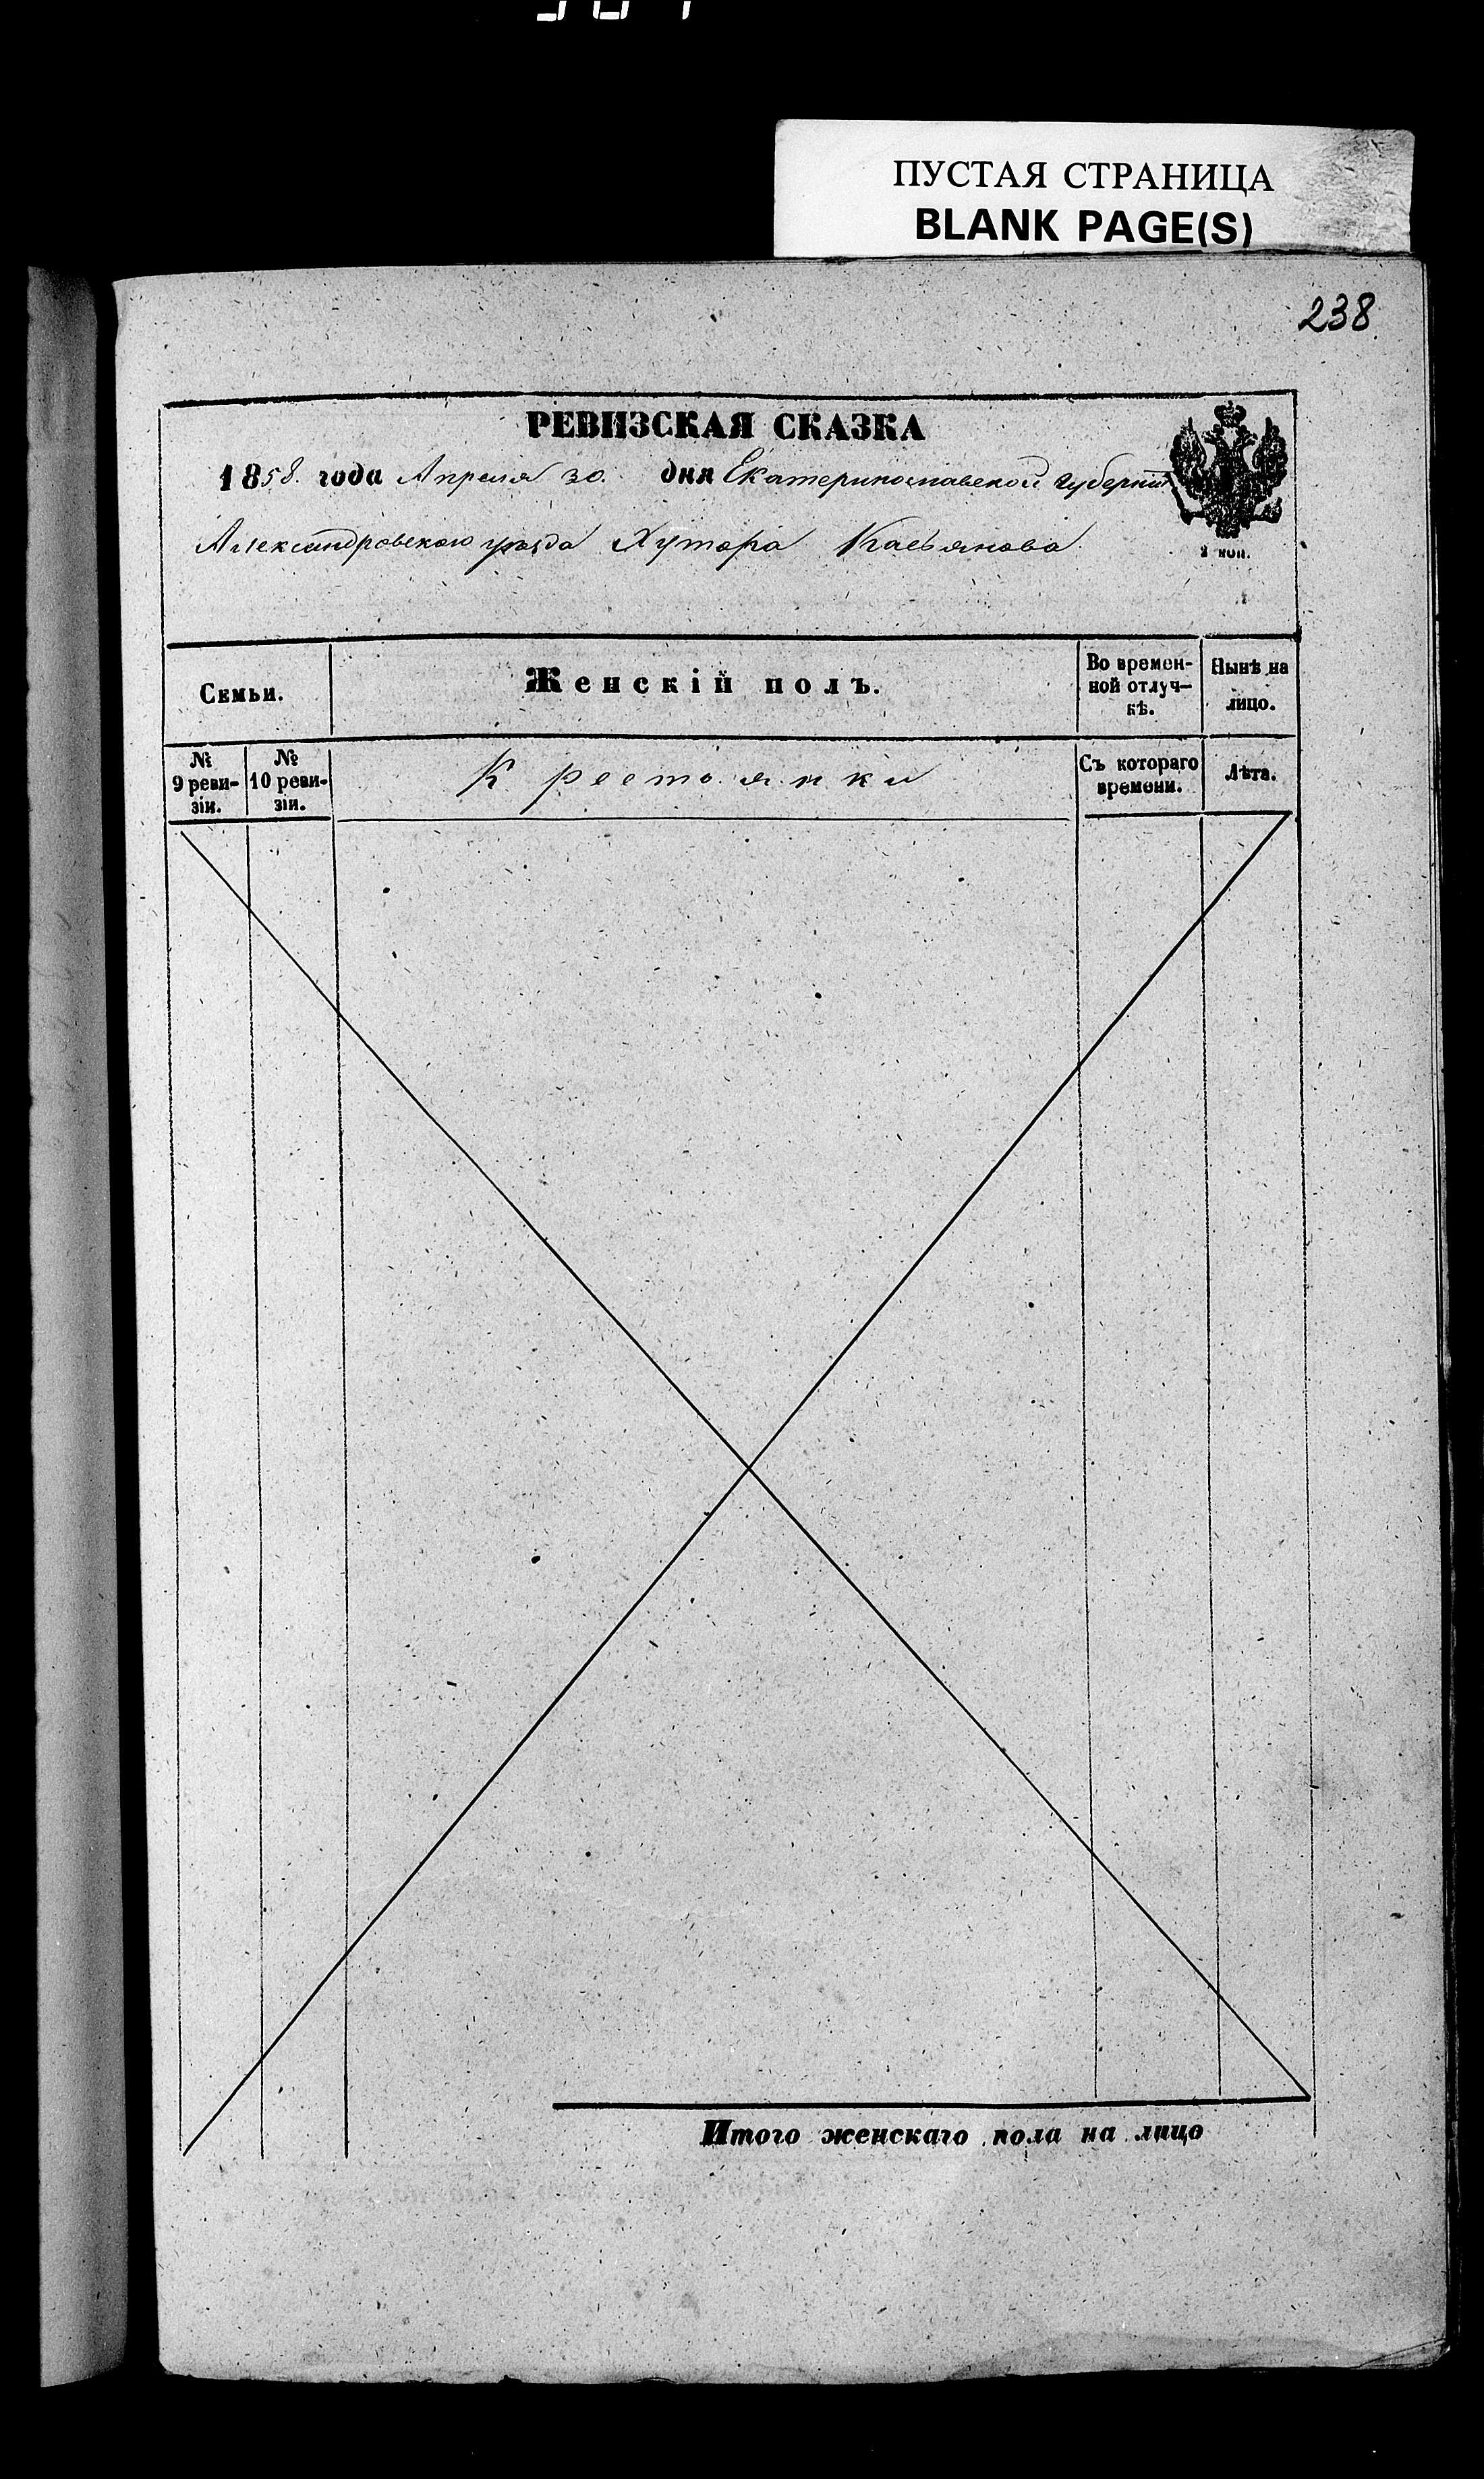 ПУСТАЯ СТРАНИЦА
BLANK PAGE(S)
238
РЕВИЗСКАЯ СКАЗКА
1858. года Апреля 30. дня Екатеринославской Губерніи
Александровскаго уѣзда Хутора Касьянова.
Семьи.
Женскій полъ.
Во времен-
ной отлуч-
кѣ.
Нынѣ на
лицо.
№
9 реви-
зіи.
№
10 реви-
зіи.
Крестьянки
Съ котораго
времени.
Лѣта.
Итого женскаго пола на лицо